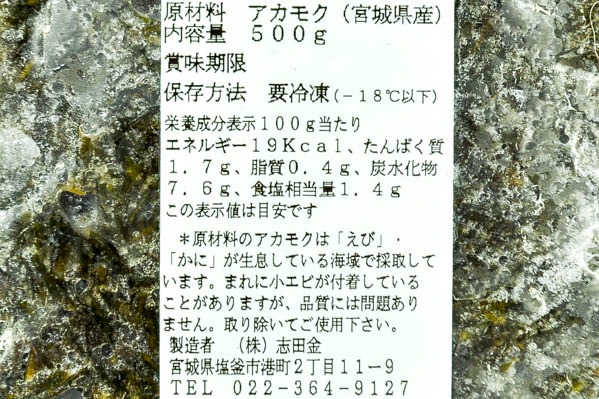 原材料　アカモク（宮城県産）
内容量　５００ｇ
賞味期限
保存方法　要冷凍（－１８℃以下）
栄養成分表示１００ｇ当たり
エネルギー１９Ｋｃａｌ、たんぱく質
１．７ｇ、脂質０．４ｇ、炭水化物
７．６ｇ、食塩相当量１．４ｇ
この表示値は目安です
＊原材料のアカモクは「えび」・
「かに」が生息している海域で採取して
います。まれに小エビが付着している
ことがありますが、品質には問題あり
ません。取り除いてご使用下さい。
製造者　（株）志田金
宮城県塩釜市港町２丁目１１－９
ＴＥＬ　０２２－３６４－９１２７